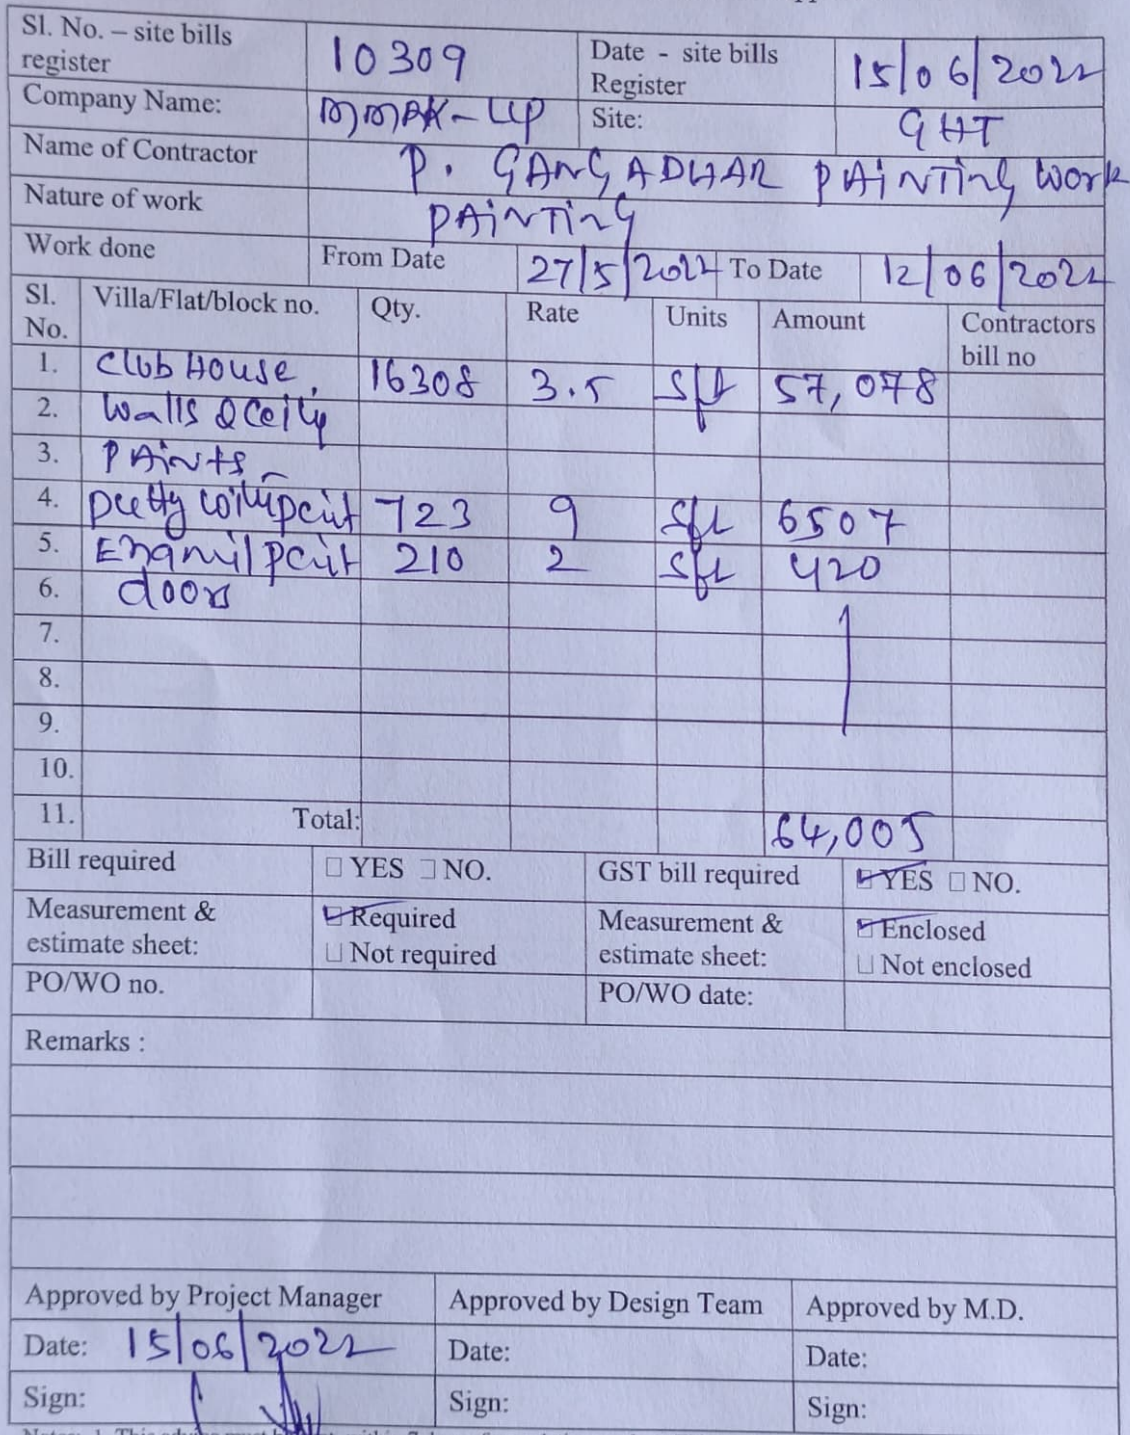 Sl. No. – site bills register 10309 Date - site bills Register 15/06/2022
Company Name: MMRK-LLP Site: GHT
Name of Contractor P. GANGADHAR PAiNTiNG Work
Nature of work PAiNTiNG
Work done From Date 27/5/2022 To Date 12/06/2022
Sl. No. Villa/Flat/block no. Qty. Rate Units Amount Contractors bill no
1. Club House, 16308 3.5 Sft 57,078
2. Walls &
3. PAiNTS
4. Putty 723 9 Sft 6507
5. 210 2 Sft 420
6. doors
7.
8.
9.
10.
11. Total: 64,005
Bill required YES NO. GST bill required YES NO.
Measurement & estimate sheet: Required Not required Measurement & estimate sheet: Enclosed Not enclosed
PO/WO no. PO/WO date:
Remarks :
Approved by Project Manager Approved by Design Team Approved by M.D.
Date: 15/06/2022 Date: Date:
Sign: Sign: Sign: